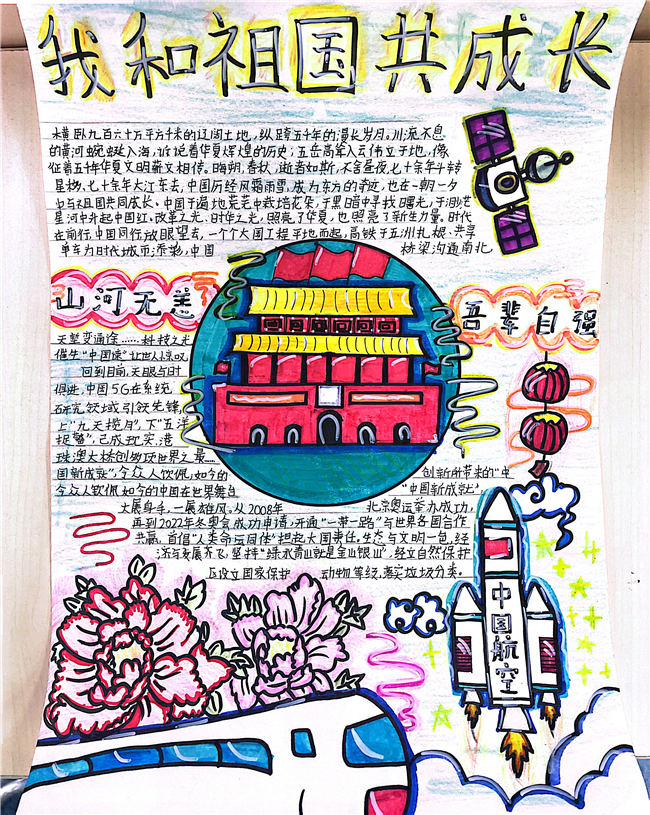 我和祖国共成长
横卧九百六十万平方千米的辽阔土地，纵跨五千年的漫长岁月。川流不息
的黄河蜿蜒入海，诉说着华夏辉煌的历史；五岳高耸入云伟立于地，像
征着五千年华夏文明薪火相传。晦朔春秋，逝者如斯，不舍昼夜，七十余年斗转
星移，七十余年大江东去，中国历经风霜雨雪，成为东方的奇迹，也在一朝一夕
中与祖国共同成长。中国于遍地荒芜中栽培花朵，于黑暗中寻找曙光，于
星河中升起中国红。改革之光、时代之光，照亮了华夏，也照亮了新生力量。时代
在前行，中国同行放眼望去，一个个大国工程平地而起，高铁于五洲扎根、共享
单车为时代城市添彩，中国 桥梁沟通南北
山河无恙
吾辈自强
天堑变通途……科技之光
催生“中国速”让世人惊叹
回到目前，天眼与时
俱进，中国5G在系统
研究领域引领先锋，
上“九天揽月”，下“五洋
捉鳖”，已成现实，港
珠澳大桥创数项世界之最……
国新成就”，令众人钦佩，如今的 创新所带来的“中
令众人钦佩，如今的中国在世界舞台 “中国新成就”
大展身手，一展雄风。从2008年 北京奥运举办成功，
再到2022年冬奥会成功申请，开通“一带一路”与世界各国合作
共赢，首倡“人类命运同体”担起大国责任。生态与文明一包，经
济与发展齐飞，坚持“绿水青山就是金山银山”，经立自然保护
区设立国家保护 动物等级，落实垃圾分类。
中国航空